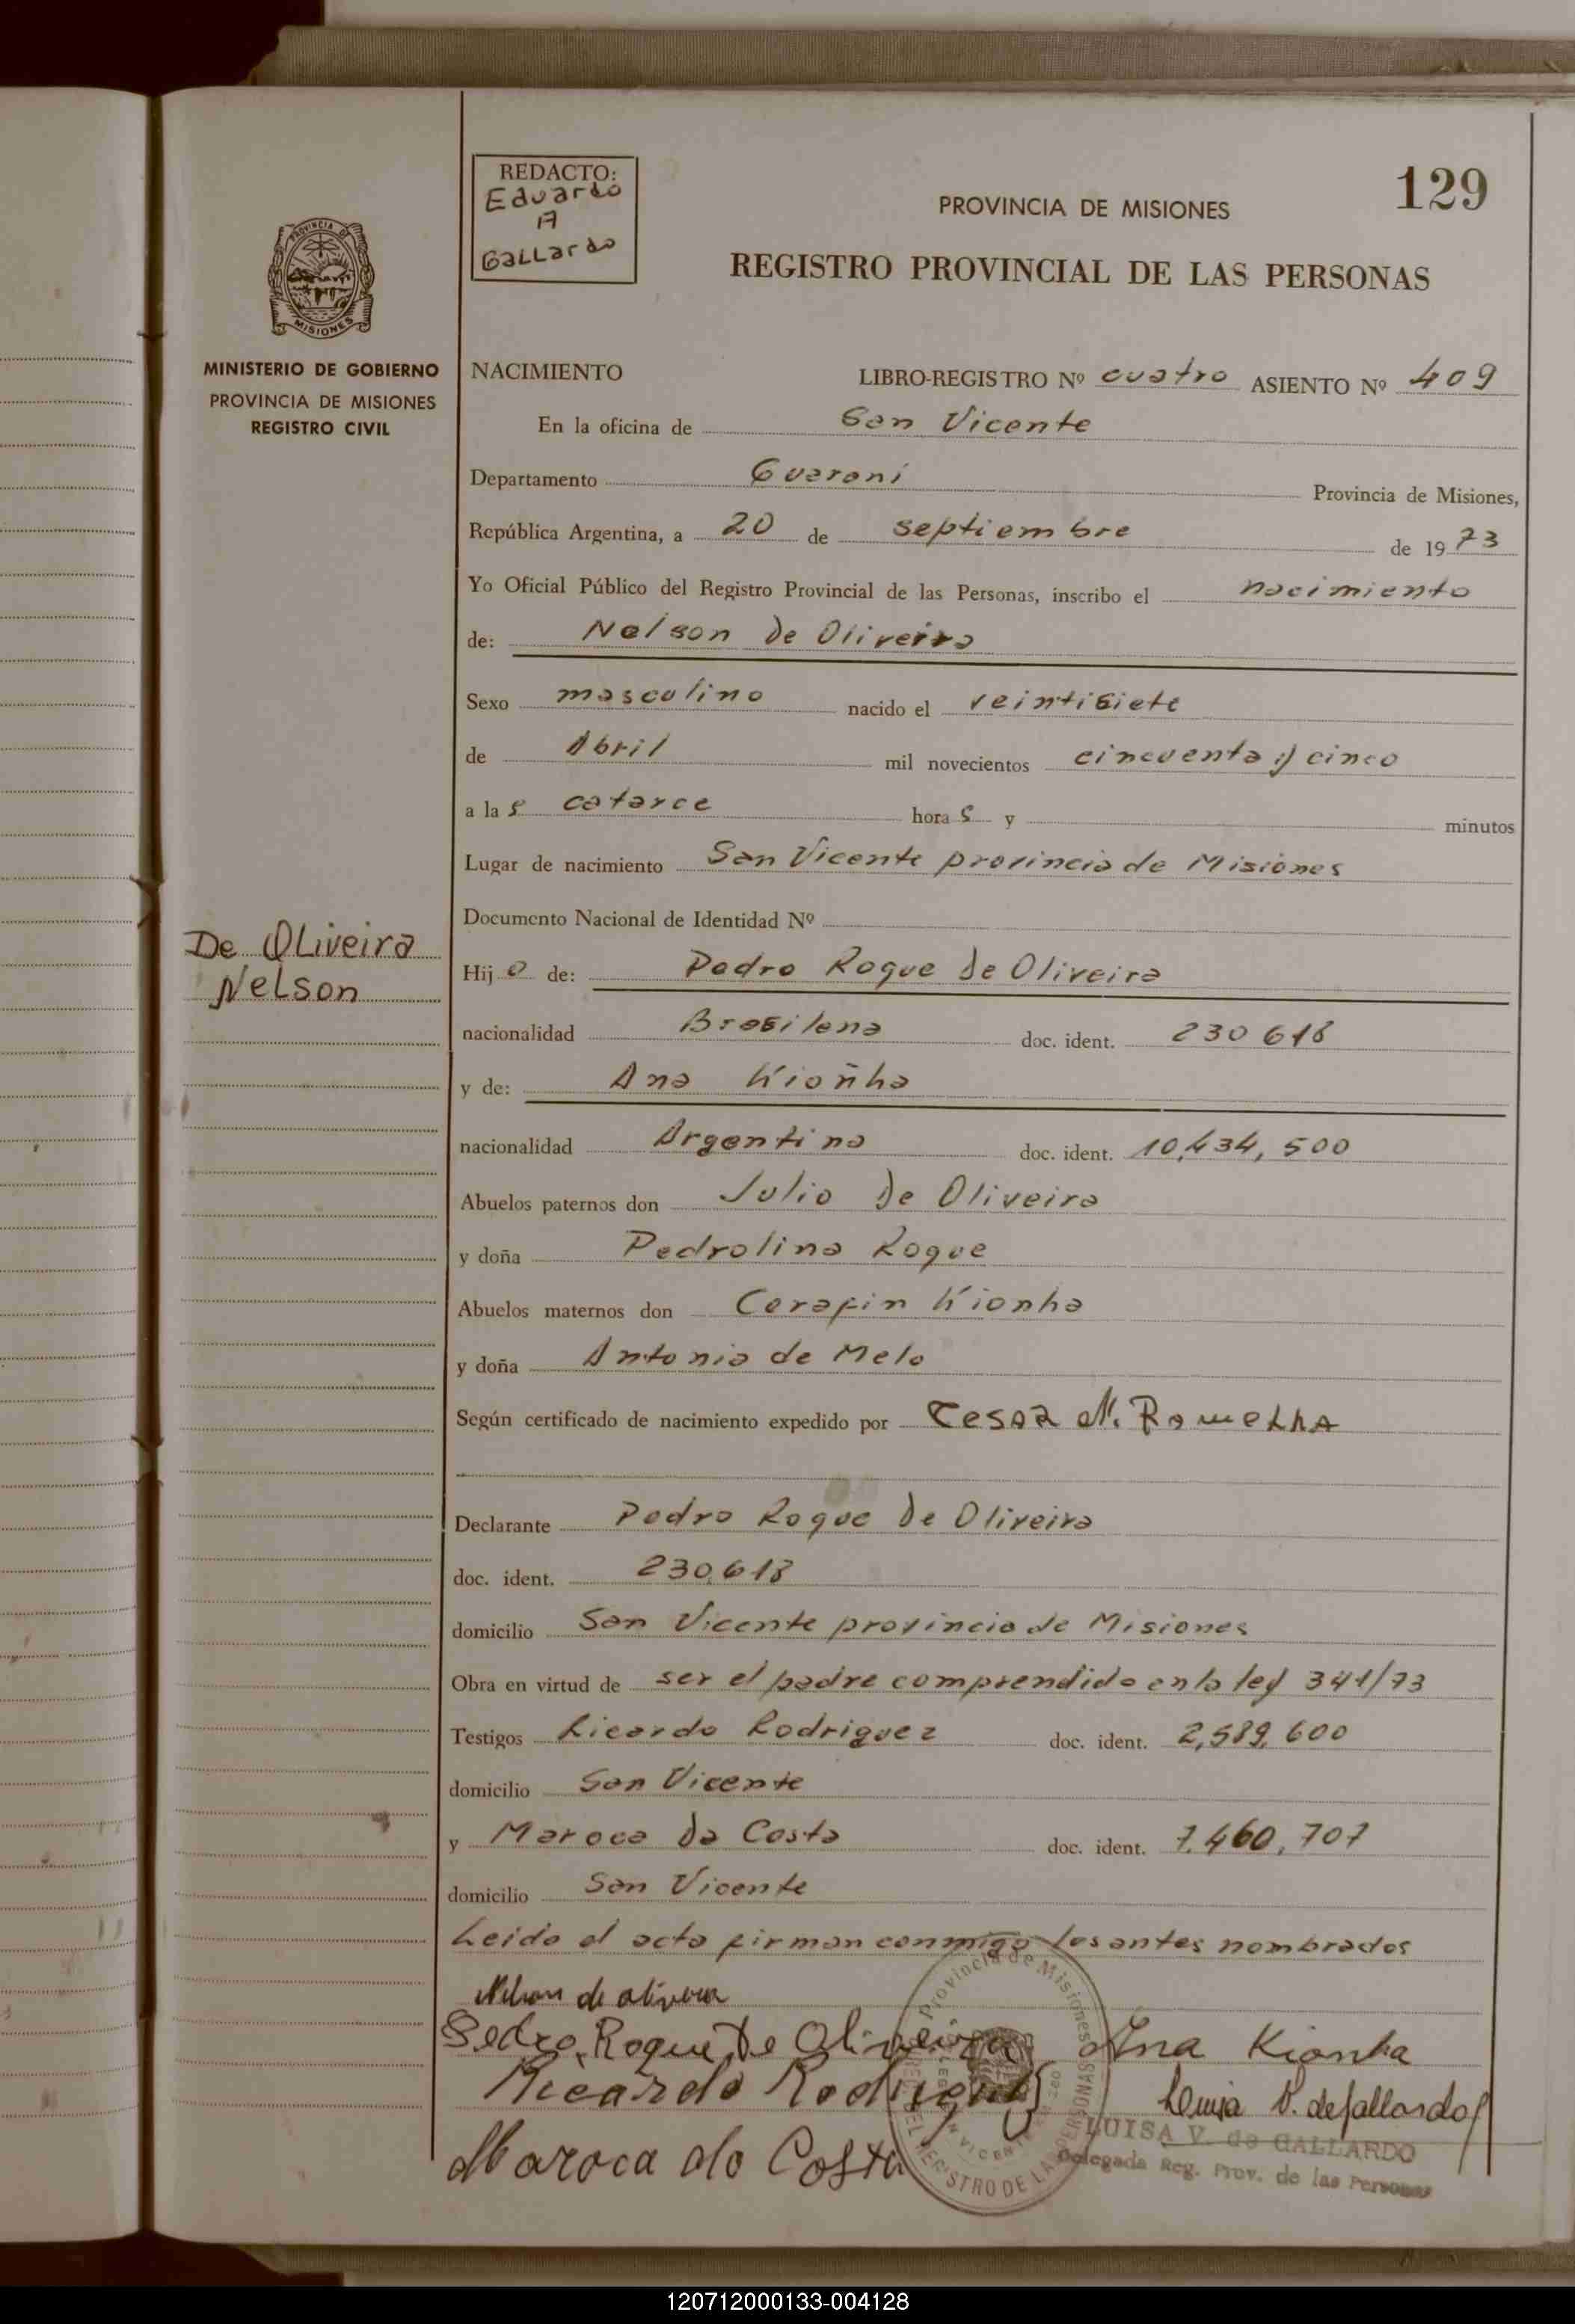 REDACTO:
Eduardo
A
Gallardo
129
PROVINCIA DE MISIONES
REGISTRO PROVINCIAL DE LAS PERSONAS
PROVINCIA DE
MISIONES
MINISTERIO DE GOBIERNO
PROVINCIA DE MISIONES
REGISTRO CIVIL
NACIMIENTO LIBRO-REGISTRO Nº cuatro ASIENTO Nº 409
En la oficina de San Vicente
Departamento Guarani Provincia de Misiones,
República Argentina, a 20 de septiembre de 1973
Yo Oficial Público del Registro Provincial de las Personas, inscribo el nacimiento
de: Nelson de Oliveira
Sexo masculino nacido el veintisiete
de Abril mil novecientos cincuenta y cinco
a las catorce horas y minutos
Lugar de nacimiento San Vicente provincia de Misiones
Documento Nacional de Identidad Nº
De Oliveira
Nelson
Hijo de: Pedro Roque de Oliveira
nacionalidad Brasilena doc. ident. 230618
y de: Ana Kioñha
nacionalidad Argentina doc. ident. 10,434,500
Abuelos paternos don Julio de Oliveira
y doña Pedrolina Roque
Abuelos maternos don Cerafin Kionha
y doña Antonia de Melo
Según certificado de nacimiento expedido por Cesar M. Romella
Declarante Pedro Roque de Oliveira
doc. ident. 230,618
domicilio San Vicente provincia de Misiones
Obra en virtud de ser el padre comprendido en la ley 341/73
Testigos Ricardo Rodriguez doc. ident. 2,589,600
domicilio San Vicente
y Maroca da Costa doc. ident. 7,460,707
domicilio San Vicente
Leida el acta firman conmigo los antes nombrados
Nelson de olivera
Pedro Roque De Oliveira Ana Kionha
Ricardo Rodriguez Luisa V. de Gallardo
Maroca do Costa
LUISA V. de GALLARDO
Delegada Reg. Prov. de las Personas
Provincia de Misiones
REGISTRO DE LAS PERSONAS
120712000133-004128